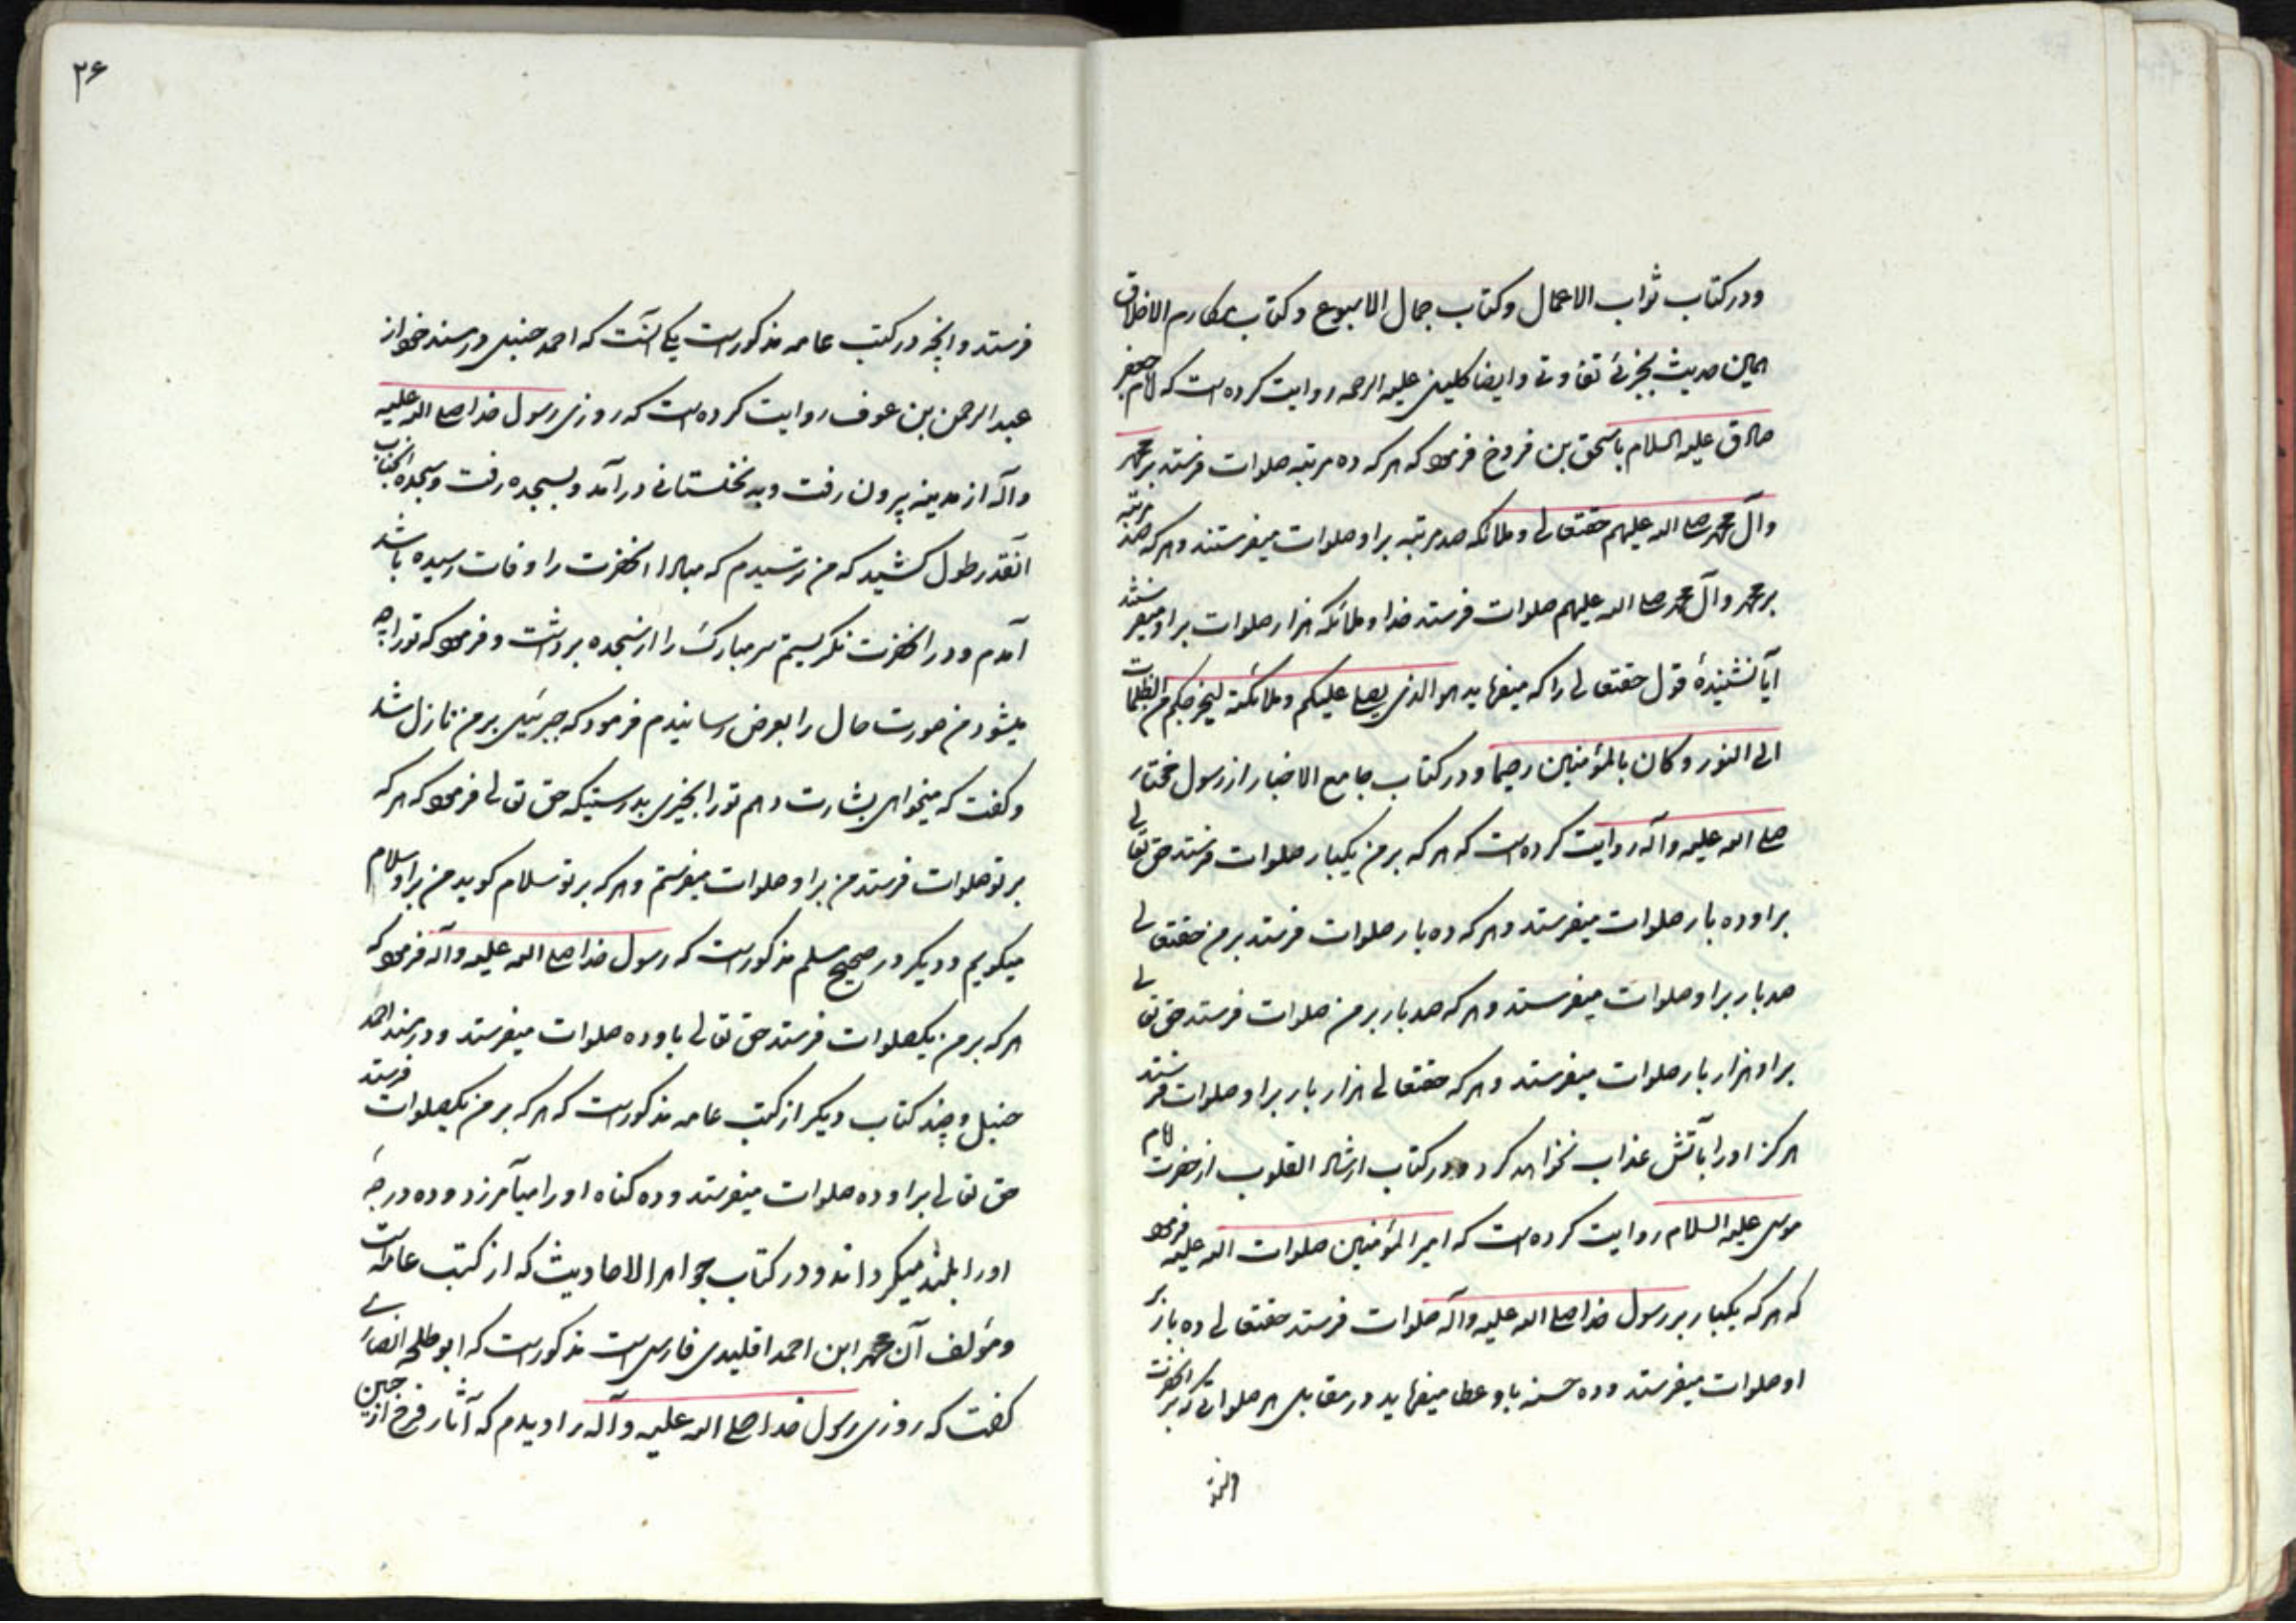 ودر کتاب ثواب الاعمال وکتاب جمال الاسبوع وکتاب مکارم الاخلاق
همین حدیث بجزئی تفاوتی وایضا کلینی علیه الرحمه روایت کرده است که امام جعفر
صادق علیه السلام باسحق بن فروخ فرمود که هر که ده مرتبه صلوات فرستد بر محمد
وآل محمد صلی الله علیهم حقتعالی وملائکه صد مرتبه بر او صلوات میفرستند وهر که صد مرتبه
بر محمد وآل محمد صلی الله علیهم صلوات فرستد خدا وملائکه هزار صلوات بر او میفرستند
آیا نشنیدهٔ قول حقتعالی را که میفرماید هو الذی یصلی علیکم وملائکته لیخرجکم من الظلمات
الی النور وکان بالمؤمنین رحیما ودر کتاب جامع الاخبار از رسول مختار
صلی الله علیه وآله روایت کرده است که هر که بر من یکبار صلوات فرستد حق تعالی
بر او ده بار صلوات میفرستد وهر که ده بار صلوات فرستد بر من حقتعالی
صد بار بر او صلوات میفرستد وهر که صد بار بر من صلوات فرستد حق تعالی
بر او هزار بار صلوات میفرستد وهر که حقتعالی هزار بار بر او صلوات فرستد
هرگز او را بآتش عذاب نخواهد کرد ودر کتاب ارشاد القلوب از حضرت امام
موسی علیه السلام روایت کرده است که امیر المؤمنین صلوات الله علیه فرمود
که هر که یکبار بر رسول خدا صلی الله علیه وآله صلوات فرستد حقتعالی ده بار بر
او صلوات میفرستد وده حسنه باو عطا میفرماید در مقابل هر صلواتی که بر آنحضرت
۲۶
فرستد وآنچه در کتب عامه مذکور است یکی آنست که احمد حنبل در مسند خود از
عبد الرحمن بن عوف روایت کرده است که روزی رسول خدا صلی الله علیه
وآله از مدینه بیرون رفت وبه نخلستانی در آمد وبسجده رفت وسجده آنجناب
آنقدر طول کشید که من ترسیدم که مبادا آنحضرت را وفات رسیده باشد
آمدم ودر آنحضرت نگریستم سر مبارکش را از سجده برداشت وفرمود که تو را چه
میشود من صورت حال را بعرض رسانیدم فرمود که جبرئیل بر من نازل شد
وگفت که میخواهی بشارت دهم تو را بچیزی بدرستیکه حق تعالی فرمود که هر که
بر تو صلوات فرستد من بر او صلوات میفرستم وهر که بر تو سلام گوید من بر او سلام
میگویم ودیگر در صحیح مسلم مذکور است که رسول خدا صلی الله علیه وآله فرمود که
هر که بر من یکصلوات فرستد حق تعالی باو ده صلوات میفرستد ودر مسند احمد
حنبل وچند کتاب دیگر از کتب عامه مذکور است که هر که بر من یکصلوات فرستد
حق تعالی بر او ده صلوات میفرستد وده گناه او را میآمرزد وده درجهٔ
او را بلند میگرداند ودر کتاب جواهر الاحادیث که از کتب عامه است
ومؤلف آن محمد ابن احمد اقلیدی فارسی است مذکور است که ابو طلحه انصاری
گفت که روزی رسول خدا صلی الله علیه وآله را دیدم که آثار فرح از جبین